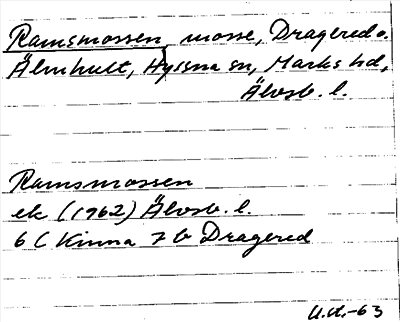 Ramsmossen, mosse, Dragered o.
Älmhult, Hyssna sn, Marks hd,
Älvsb. l.
Ramsmossen
ek (1962) Älvsb. l.
6 C Kinna 7 b Dragered
U.U.-63